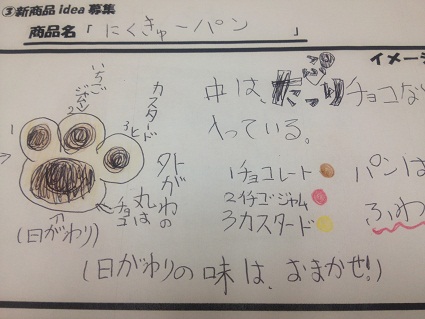 ③新商品idea募集
商品名「にくきゅーパン」
イメー
いちごジャム
2
カスタード
1
3
外がわの丸は
チョコ
(日がわり)
中は、
チョコな
入っている。
1チョコレート
2イチゴジャム
3カスタード
パンは
ふわ
(日がわりの味は、おまかせ!)